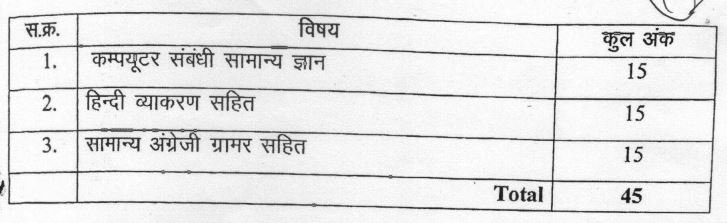 स.क्र. विषय कुल अंक
1. कम्पयूटर संबंधी सामान्य ज्ञान 15
2. हिन्दी व्याकरण सहित 15
3. सामान्य अंग्रेजी ग्रामर सहित 15
Total 45